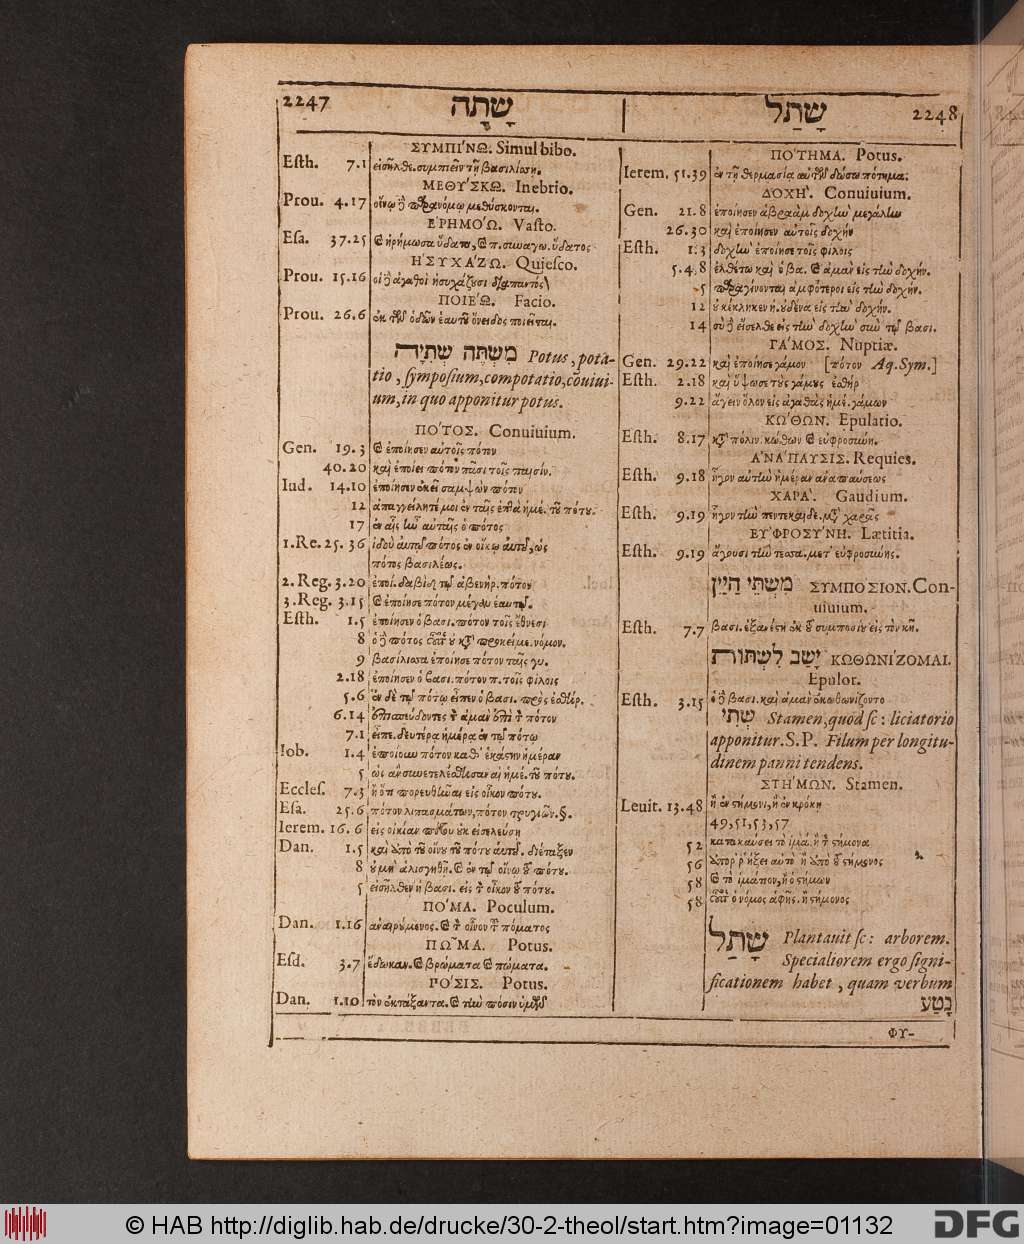 2247 שָׁתָה
שָׁתַל 2248
ΣΥΜΠΙ´ΝΩ. Simul bibo.
Esth. 7.1 εἰσῆλθε. συμπιεῖν τῇ βασιλίσσῃ.
ΜΕΘΥ´ΣΚΩ. Inebrio.
Prou. 4.17 οἴνῳ ϳ παρανόμῳ μεθύσκονται.
ἘΡΗΜΟ´Ω. Vasto.
Esa. 37.25 ἠρήμωσα ὕδατα, συναγω. ὕδατος
ἩΣΥΧΑ´ΖΩ. Quiesco.
Prou. 15.16 οἱ ἀγαθοὶ ἡσυχάζουσι διαπαντός
ΠΟΙΕ´Ω. Facio.
Prou. 26.6 ἐκ τῶν ὁδῶν ἑαυτοῦ ὄνειδος ποιεῖται.
מִשְׁתֶּה שְׁתִיָּה Potus, pota-
tio, symposium, compotatio, cōuiui-
um, in quo apponitur potus.
ΠΟ´ΤΟΣ. Conuiuium.
Gen. 19.3 ἐποίησεν αὐτοῖς πότον
40.20 καὶ ἐποίει πότον πᾶσι τοῖς παισίν.
Iud. 14.10 ἐποίησεν ἐκεῖ σαμψὼν πότον
12 ἀπαγγείλητέ μοι ἐν ταῖς ἑπτὰ ἡμέ. τοῦ πότου.
17 ἐν αἷς ἦν αὐταῖς ὁ πότος
1.Re. 25.36 ἰδοὺ αὐτῷ πότος ἐν οἴκῳ αὐτοῦ, ὡς
πότος βασιλέως.
2. Reg. 3.20 ἐποί. δαβὶδ τῷ ἀβενήρ. πότον
3. Reg. 3.15 ἐποίησε πότον μέγαν ἑαυτῷ.
Esth. 1.5 ἐποίησεν ὁ βασι. πότον τοῖς ἔθνεσι
8 ὁ πότος οὗτος οὐ κτ προκείμε. νόμον.
9 βασίλισσα ἐποίησε πότον ταῖς γυ.
2.18 ἐποίησεν ὁ βασι. πότον π. τοῖς φίλοις
5.6 ἐν δὲ τῷ πότῳ εἶπεν ὁ βασι. πρὸς ἐσθήρ.
6.14 ἐπισπεύδοντες τὸν ἀμὰν ἐπὶ τὸν πότον
7.1 εἶπε. δευτέρᾳ ἡμέρᾳ ἐν τῷ πότῳ
Iob. 1.4 ἐποίουν πότον καθ' ἑκάστην ἡμέραν
5 ὡς ἂν συνετελέσθησαν αἱ ἡμέ. τοῦ πότου.
Eccles. 7.3 ἢ ὅτι πορευθῆναι εἰς οἶκον πότου.
Esa. 25.6 πότον λιπασμάτων, πότον τρυγιῶν. §.
Ierem. 16.6 εἰς οἰκίαν πότου οὐκ εἰσελεύσῃ
Dan. 1.5 καὶ ἀπὸ τοῦ οἴνου τοῦ πότου αὐτοῦ. διέταξεν
8 οὐ μὴ ἀλισγηθῇ. ἐν τῷ οἴνῳ τοῦ πότου.
5 εἰσῆλθεν ἡ βασι. εἰς τὸν οἶκον τοῦ πότου.
ΠΟ´ΜΑ. Poculum.
Dan. 1.16 ἀναιρούμενος. τὸν οἶνον τοῦ πόματος
ΠΩ῀ΜΑ. Potus.
Esd. 3.7 ἔδωκαν. βρώματα πώματα.
ΠΟ´ΣΙΣ. Potus.
Dan. 1.10 τὸν ἐκτάξαντα. τὴν πόσιν ὑμῶν
ΠΟ´ΤΗΜΑ. Potus.
Ierem. 51.39 ἐν τῇ θερμασίᾳ αὐτῶν δώσω πότημα.
ΔΟΧΗ´. Conuiuium.
Gen. 21.8 ἐποίησεν ἀβραὰμ δοχὴν μεγάλην
26.30 καὶ ἐποίησεν αὐτοῖς δοχήν
Esth. 1.3 δοχὴν ἐποίησε τοῖς φίλοις
5.4,8 ἐλθέτω καὶ ὁ βα. ἀμὰν εἰς τὴν δοχήν.
5 παραγίνονται ἀμφότεροι εἰς τὴν δοχήν.
12 οὐ κέκληκεν ἡ. οὐδένα εἰς τὴν δοχήν.
14 σὺ εἴσελθε εἰς τὴν δοχὴν σὺν τῷ βασι.
ΓΑ´ΜΟΣ. Nuptiæ.
Gen. 29.22 καὶ ἐποίησε γάμον [πότον Aq. Sym.]
Esth. 2.18 καὶ ὕψωσε τοὺς γάμους ἐσθήρ
9.22 ἄγειν ὅλον εἰς ἀγαθὰς ἡμέ. γάμων
ΚΩ´ΘΩΝ. Epulatio.
Esth. 8.17 κτ πόλιν. κώθων εὐφροσύνη.
ἈΝΑ´ΠΑΥΣΙΣ. Requies.
Esth. 9.18 ἦγον αὐτὴν ἡμέραν ἀναπαύσεως
ΧΑΡΑ´. Gaudium.
Esth. 9.19 ἦγον τὴν πεντεκαιδε. μτ χαρᾶς
ΕΥ᾿ΦΡΟΣΥ´ΝΗ. Lætitia.
Esth. 9.19 ἄγουσι τὴν τεσσα. μετ' εὐφροσύνης.
מִשְׁתֵּי הַיַּיִן ΣΥΜΠΟΣΙΟΝ. Con-
uiuium.
Esth. 7.7 βασι. ἐξανέστη ἐκ τοῦ συμποσίου εἰς τὸν κῆ.
יָשַׁב לִשְׁתּוֹת ΚΩΘΩΝΙ´ΖΟΜΑΙ.
Epulor.
Esth. 3.15 ὁ βασι. καὶ ἀμὰν ἐκωθωνίζοντο
שְׁתִי Stamen, quod sc: liciatorio
apponitur. S.P. Filum per longitu-
dinem panni tendens.
ΣΤΗ´ΜΩΝ. Stamen.
Leuit. 13.48 ἢ ἐν στήμονι, ἢ ἐν κρόκῃ
49, 51, 53, 57
52 κατακαύσει τὸ ἱμά. ἢ τὸν στήμονα
56 ἀπορρήξει αὐτὸ ἢ ἀπὸ τοῦ στήμονος
58 τὸ ἱμάτιον, ἢ ὁ στήμων
58 οὗτος ὁ νόμος ἁφῆς. ἢ στήμονος
שָׁתַל Plantauit sc: arborem.
Specialiorem ergo signi-
ficationem habet, quam verbum
נָטַע
ΦΥ-
© HAB http://diglib.hab.de/drucke/30-2-theol/start.htm?image=01132
DFG